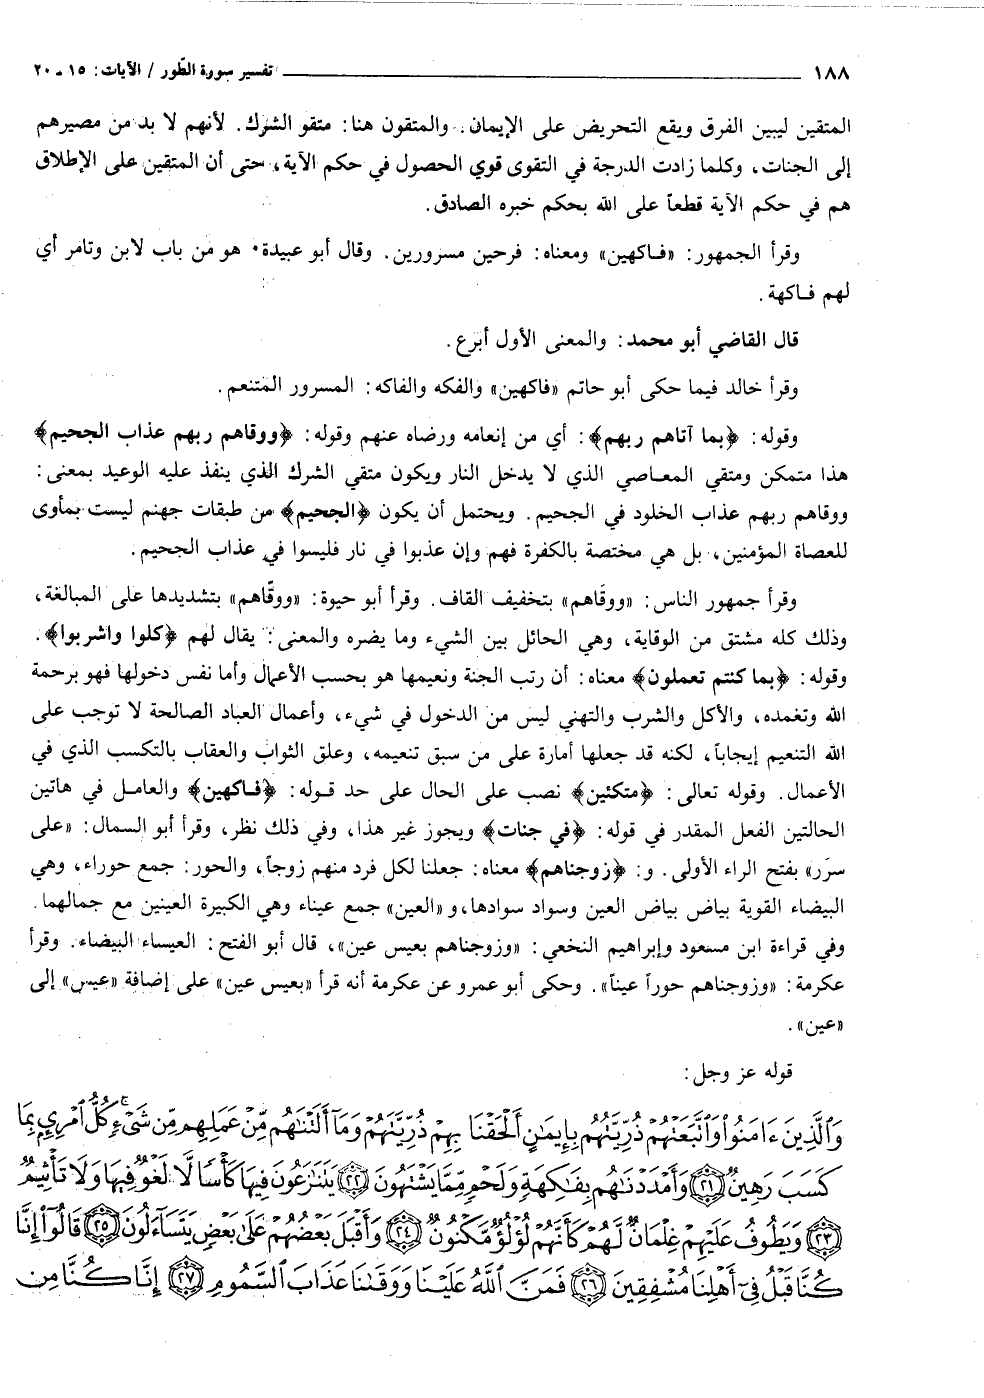 ١٨٨ تفسير سورة الطور / الآيات: ١٥ - ٢٠
المتقين ليبين الفرق ويقع التحريض على الإيمان. والمتقون هنا: متقو الشرك. لأنهم لا بد من مصيرهم
إلى الجنات، وكلما زادت الدرجة في التقوى قوي الحصول في حكم الآية، حتى أن المتقين على الإطلاق
هم في حكم الآية قطعاً على الله بحكم خبره الصادق.
وقرأ الجمهور: «فـاكهين» ومعناه: فرحين مسرورين. وقال أبو عبيدة· هو من باب لابن وتامر أي
لهم فـاكهة.
قال القاضي أبو محمد: والمعنى الأول أبرع.
وقرأ خالد فيما حكى أبو حاتم «فاكهين» والفكه والفاكه: المسرور المتنعم.
وقوله: ﴿بما آتاهم ربهم﴾: أي من إنعامه ورضاه عنهم وقوله: ﴿ووقاهم ربهم عذاب الجحيم﴾
هذا متمكن ومتقي المعـاصي الذي لا يدخل النار ويكون متقي الشرك الذي ينفذ عليه الوعيد بمعنى:
ووقاهم ربهم عذاب الخلود في الجحيم. ويحتمل أن يكون ﴿الجحيم﴾ من طبقات جهنم ليست بمأوى
للعصاة المؤمنين، بل هي مختصة بالكفرة فهم وإن عذبوا في نار فليسوا في عذاب الجحيم.
وقرأ جمهور الناس: «ووقَاهم» بتخفيف القاف. وقرأ أبو حيوة: «ووقّاهم» بتشديدها على المبالغة،
وذلك كله مشتق من الوقاية، وهي الحائل بين الشيء وما يضره والمعنى: يقال لهم ﴿كلوا واشربوا﴾.
وقوله: ﴿بما كنتم تعملون﴾ معناه: أن رتب الجنة ونعيمها هو بحسب الأعمال وأما نفس دخولها فهو برحمة
الله وتغمده، والأكل والشرب والتهني ليس من الدخول في شيء، وأعمال العباد الصالحة لا توجب على
الله التنعيم إيجاباً، لكنه قد جعلها أمارة على من سبق تنعيمه، وعلق الثواب والعقاب بالتكسب الذي في
الأعمال. وقوله تعالى: ﴿متكئين﴾ نصب على الحال على حد قـوله: ﴿فـاكهين﴾ والعامـل في هاتين
الحالتين الفعل المقدر في قوله: ﴿في جنات﴾ ويجوز غير هذا، وفي ذلك نظر، وقرأ أبو السمال: «على
سرَر» بفتح الراء الأولى. و: ﴿زوجناهم﴾ معناه: جعلنا لكل فرد منهم زوجاً، والحور: جمع حوراء، وهي
البيضاء القوية بياض بياض العين وسواد سوادها، و«العين» جمع عيناء وهي الكبيرة العينين مع جمالهما.
وفي قراءة ابن مسعود وإبراهيم النخعي: «وزوجناهم بعيس عين»، قال أبو الفتح: العيساء البيضاء. وقرأ
عكرمة: «وزوجناهم حوراً عيناً». وحكى أبو عمرو عن عكرمة أنه قرأ «بعيس عين» على إضافة «عيس» إلى
«عين».
قوله عز وجل:
وَالَّذِينَ ءَامَنُوا۟ وَٱتَّبَعَتْهُمْ ذُرِّيَّتُهُم بِإِيمَٰنٍ أَلْحَقْنَا بِهِمْ ذُرِّيَّتَهُمْ وَمَآ أَلَتْنَٰهُم مِّنْ عَمَلِهِم مِّن شَىْءٍ كُلُّ ٱمْرِئٍ بِمَا
كَسَبَ رَهِينٌ ﴿٢١﴾ وَأَمْدَدْنَٰهُم بِفَٰكِهَةٍ وَلَحْمٍ مِّمَّا يَشْتَهُونَ ﴿٢٢﴾ يَتَنَٰزَعُونَ فِيهَا كَأْسًا لَّا لَغْوٌ فِيهَا وَلَا تَأْثِيمٌ
﴿٢٣﴾ وَيَطُوفُ عَلَيْهِمْ غِلْمَانٌ لَّهُمْ كَأَنَّهُمْ لُؤْلُؤٌ مَّكْنُونٌ ﴿٢٤﴾ وَأَقْبَلَ بَعْضُهُمْ عَلَىٰ بَعْضٍ يَتَسَآءَلُونَ ﴿٢٥﴾ قَالُوٓا۟ إِنَّا
كُنَّا قَبْلُ فِىٓ أَهْلِنَا مُشْفِقِينَ ﴿٢٦﴾ فَمَنَّ ٱللَّهُ عَلَيْنَا وَوَقَىٰنَا عَذَابَ ٱلسَّمُومِ ﴿٢٧﴾ إِنَّا كُنَّا مِن